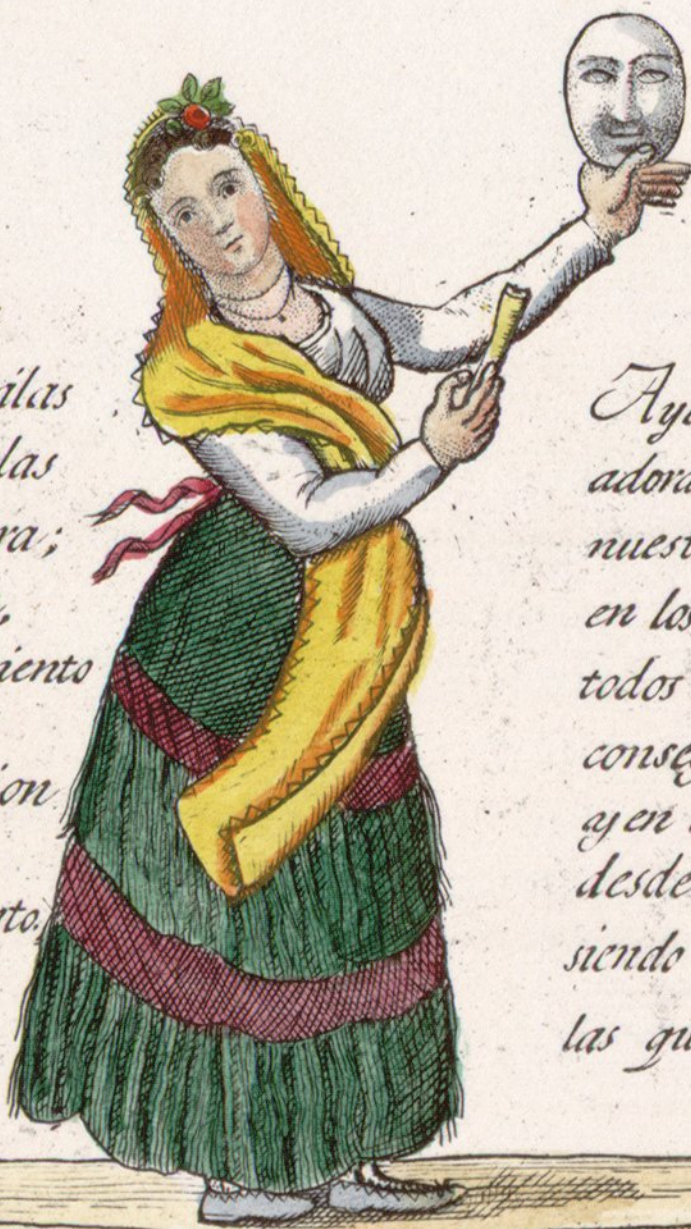 álas
las
ra;
iento
ion
rto.
Ay
adora
nuest
en los
todos
conse
ay en
desde
siendo
las qu